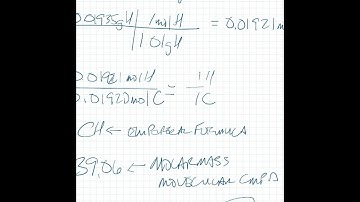 0.01935gH | 1molH = 0.01921m
| 1.01gH
0.01921molH = 1H
0.01920molC 1C
CH ← EMPIRICAL FORMULA
39.06 ← MOLARMASS
MOLECULAR CMPD